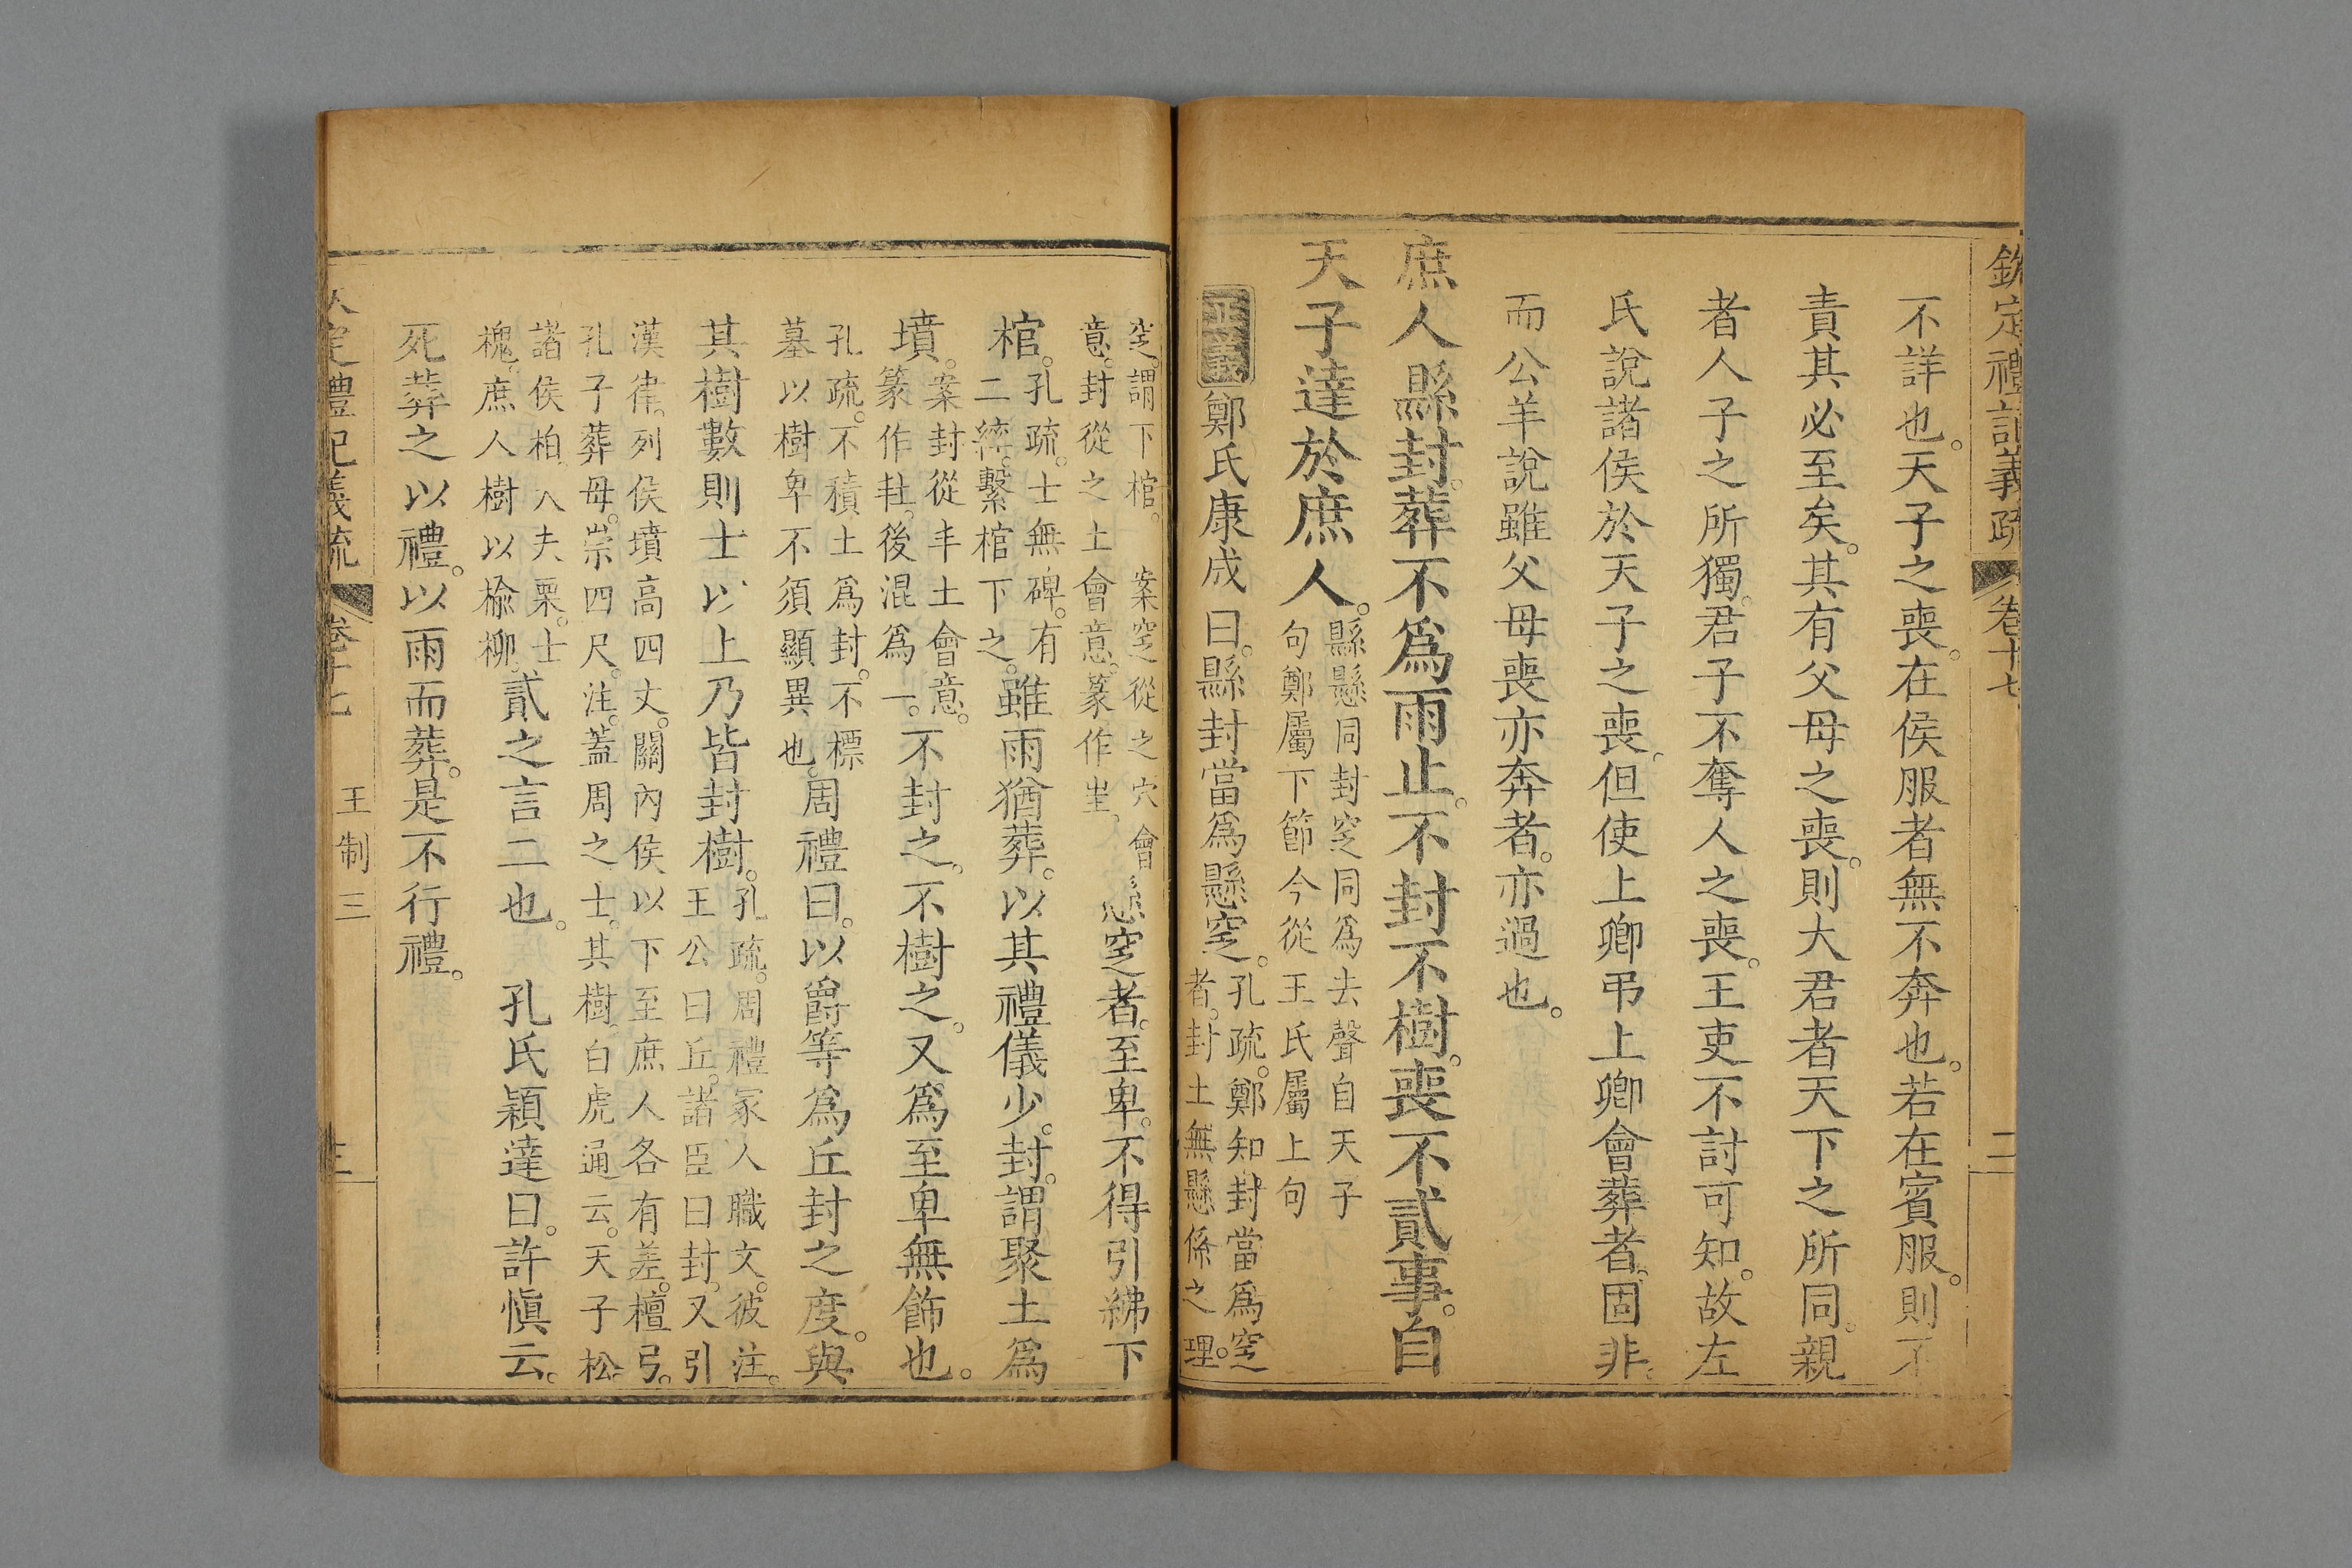 欽定禮記義疏 卷十七 二
不詳也。天子之喪。在侯服者無不奔也。若在賓服。則不
責其必至矣。其有父母之喪。則大君者天下之所同。親
者人子之所獨。君子不奪人之喪。王吏不討可知。故左
氏說諸侯於天子之喪。但使上卿弔上卿會葬者。固非。
而公羊說雖父母喪亦奔者。亦過也。
庶人縣封。葬不爲雨止。不封不樹。喪不貳事。自
天子達於庶人。
縣懸同封窆同爲去聲自天子
句鄭屬下節今從王氏屬上句
正義 鄭氏康成曰。縣封當爲懸窆。
孔疏。鄭知封當爲窆
者。封土無懸係之理。
窆。謂下棺。 案窆從之穴會
意。封從之土會意。篆作㞷。
懸窆者。至卑。不得引紼下
棺。
孔疏。士無碑。有
二繂。繫棺下之。
雖雨猶葬。以其禮儀少。封。謂聚土爲
墳。
案封從丰土會意。
篆作𡉚。後混爲一。
不封之。不樹之。又爲至卑無飾也。
孔疏。不積土爲封。不標
墓以樹卑不須顯異也。
周禮曰。以爵等爲丘封之度。與
其樹數則士以上乃皆封樹。
孔疏。周禮冢人職文。彼注。
王公曰丘。諸臣曰封。又引
漢律。列侯墳高四丈。關內侯以下至庶人各有差。檀弓。
孔子葬母。崇四尺。注。蓋周之士。其樹。白虎通云。天子松。
諸侯柏。大夫栗。士
槐。庶人樹以楡柳。
貳之言二也。 孔氏穎達曰。許愼云。
死葬之以禮。以雨而葬。是不行禮。
欽定禮記義疏 卷十七 王制三 三